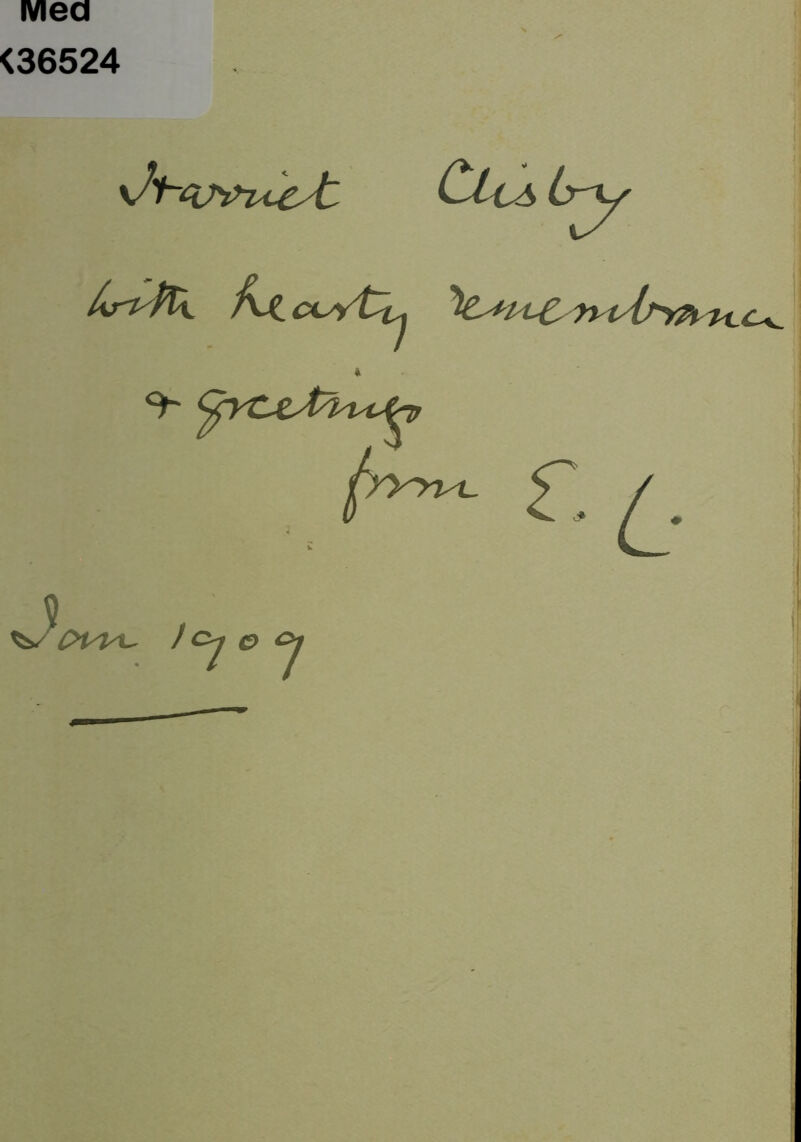 Med
K36524
Harriet Clisby
with hearty remembrance
& greetings
from E. C.
Jan 1909